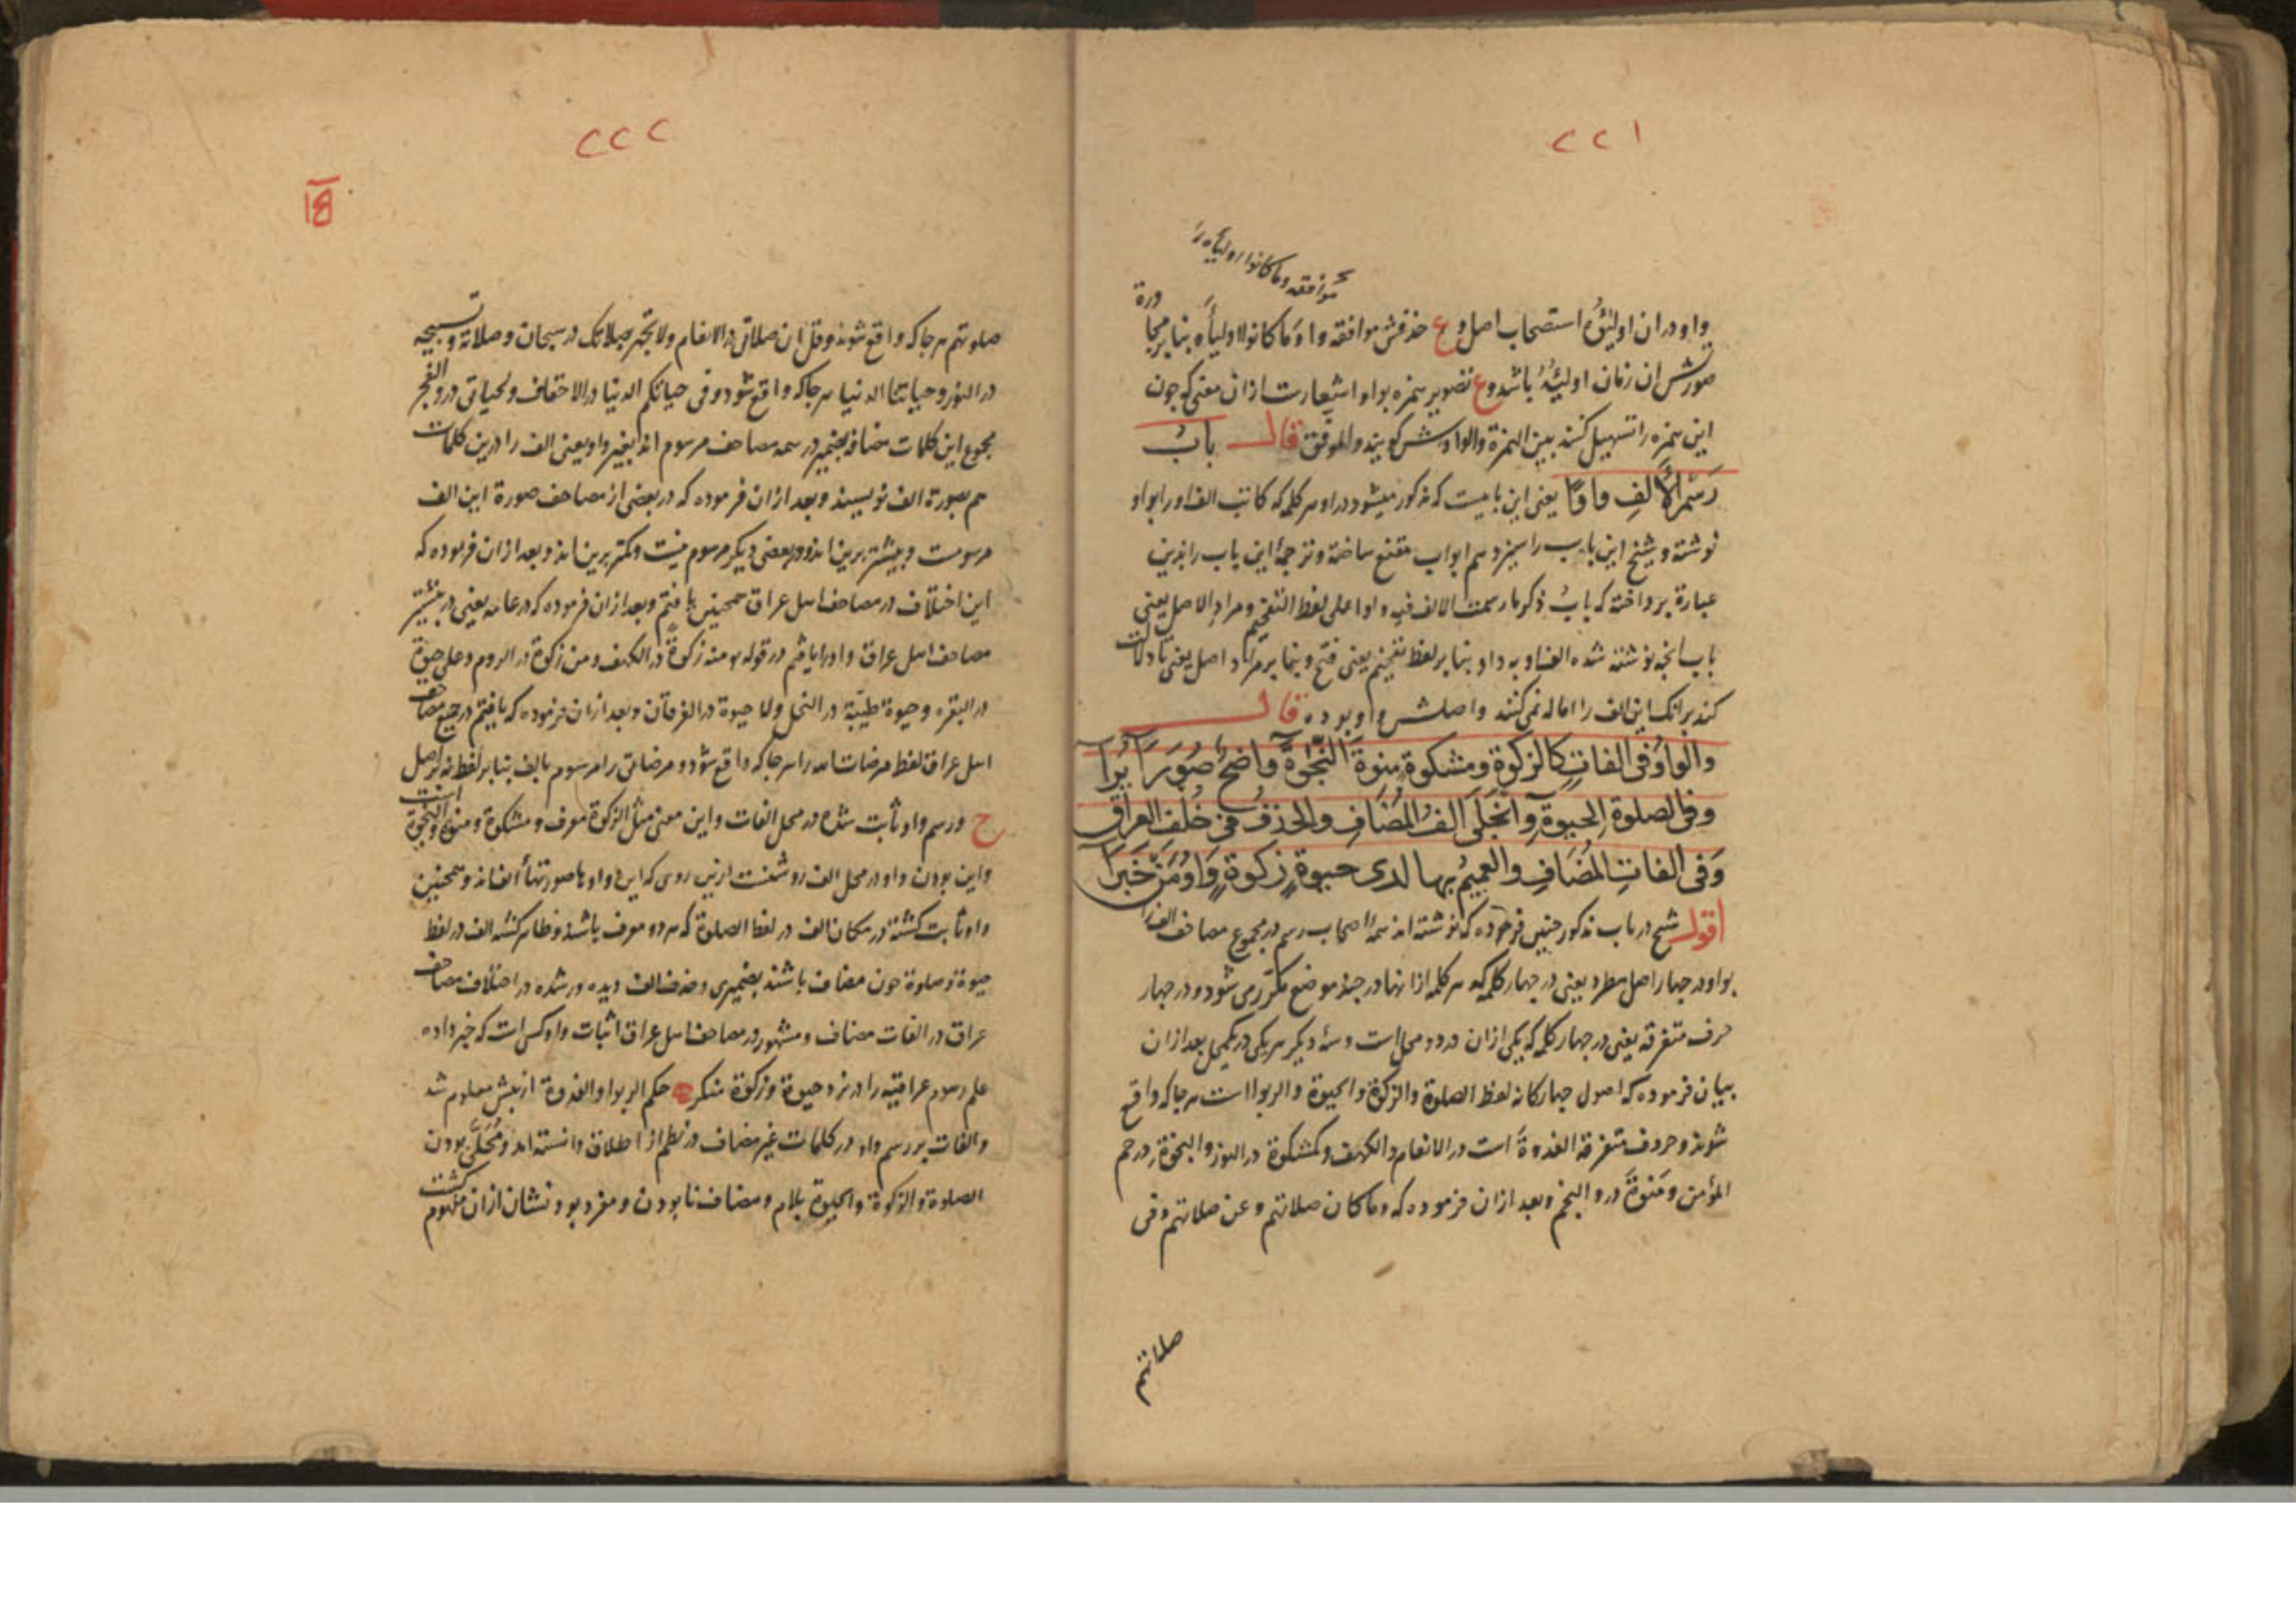 ٢٢١
موافقه وما كانوا اولياءه را
واو دران اولیؤه استصحاب اصل و ع حذفش موافقه وا وما كانوا اولیاءه بنا بر مجاورة
صورتش ان زمان اولیئه باشد و ع تصویر همزه بواو اشعارست ازان معنی که چون
این همزه را تسهیل کنند بین الهمزة والواو ش گویند والموفق قال باب
رسم الألف واوا یعنی این بابیست که مذکور میشود در او هر کلمه که کاتب الف اورا بواو
نوشته و شیخ این باب را سیزدهم ابواب مقنع ساخته و ترجمۀ این باب را بدین
عبارة پرداخته که باب ذکر ما رسمت الالف فیه واوا علی لفظ التفخیم و مراد الاصل یعنی
باب آنچه نوشته شده الف او به واو بنا بر لفظ تفخیم یعنی فتح و بنا بر مراد اصل یعنی تا دلالت
کند بر آنک این الف را اماله نمی کنند و اصلش واو بوده قال
والواو فى الفات كالزكوة ومشكوة منوة النجوة واضح صورا
وفى الصلوة الحيوة وانجلى الف المضاف والحذف فى خلف العراق يرا
وفى الفات المضاف والعميم بها لدى حيوة زكوة واو من خبرا
اقول شیخ در باب مذکور چنین فرموده که نوشته اند همۀ اصحاب رسم در مجموع مصاحف الف را
بواو در چهار اصل مطرد یعنی در چهار کلمه که هر کلمه ازانها در چند موضع مکرر می شود و در چهار
حرف متفرقه یعنی در چهار کلمه که یکی ازان در دو محل است و سۀ دیگر هر یکی در یکمحل بعد ازان
بیان فرموده که اصول چهارگانه لفظ الصلوة والزکوة والحیوة والربوا است هر جا که واقع
شوند و حروف متفرقه الغدوة است در الانعام والکهف و کمشکوة در النور والنجوة در حم
المؤمن و منوة در والنجم و بعد ازان فرموده که وما کان صلاتهم و عن صلاتهم و فی
صلاتهم
٢٢٢
صلوتهم هر جا که واقع شوند و قل ان صلاتی در الانعام ولا تجهر بصلاتک در سبحان و صلاته و تسبیحه
در النور و حیاتنا الدنیا هر جا که واقع شود و فی حیاتکم الدنیا در الاحقاف و لحیاتی در والفجر
مجموع این کلمات مضافه بضمیر در همه مصاحف مرسوم اند بغیر واو یعنی الف را درین کلمات
هم بصورة الف نویسند و بعد ازان فرموده که در بعضی از مصاحف صورة این الف
مرسومست و بیشتر برین اند و در بعضی دیگر مرسوم نیست و کمتر برین اند و بعد ازان فرموده که
این اختلاف در مصاحف اهل عراق همچنین یافتم و بعد ازان فرموده که در عامه یعنی در بیشتر
مصاحف اهل عراق واو را یافتم در قوله منه زکوة در الکهف و من زکوة در الروم و علی حیوة
در البقره و حیوة طیبة در النحل ولا حیوة در الفرقان و بعد ازان فرموده که یافتم در جمیع مصاحف
اهل عراق لفظ مرضات الله را هر جا که واقع شود و مرضاتی را مرسوم بالف بنا بر لفظ نه بر اصل
ح و رسم واو ثابت شده در محل الفات و این معنی مثل الزکوة معرف و مشکوة و منوة و النجوة است
و این بودن واو در محل الف روشنست ازین روی که این واوها صورتهاء الفاند و همچنین
واو ثابت گشته در مکان الف در لفظ الصلوة که هر دو معرف باشند و ظاهر کننده الف در لفظ
حیوة و صلوة چون مضاف باشند بضمیری و حذف الف دیده ور شده در اختلاف مصاحف
عراق در الفات مضاف و مشهور در مصاحف اهل عراق اثبات واو کسی است که خبر داده
علم رسوم عراقیه را در نزد حیوة و زکوة منکر حکم الربوا والغدوة از پیش معلوم شد
والفات بر رسم واو در کلمات غیر مضاف در نظم از اطلاق دانسته اند و محلی بودن
الصلوة والزکوة والحیوة بلام و مضاف نابودن و مفرد بودنشان ازان مفهوم گشت